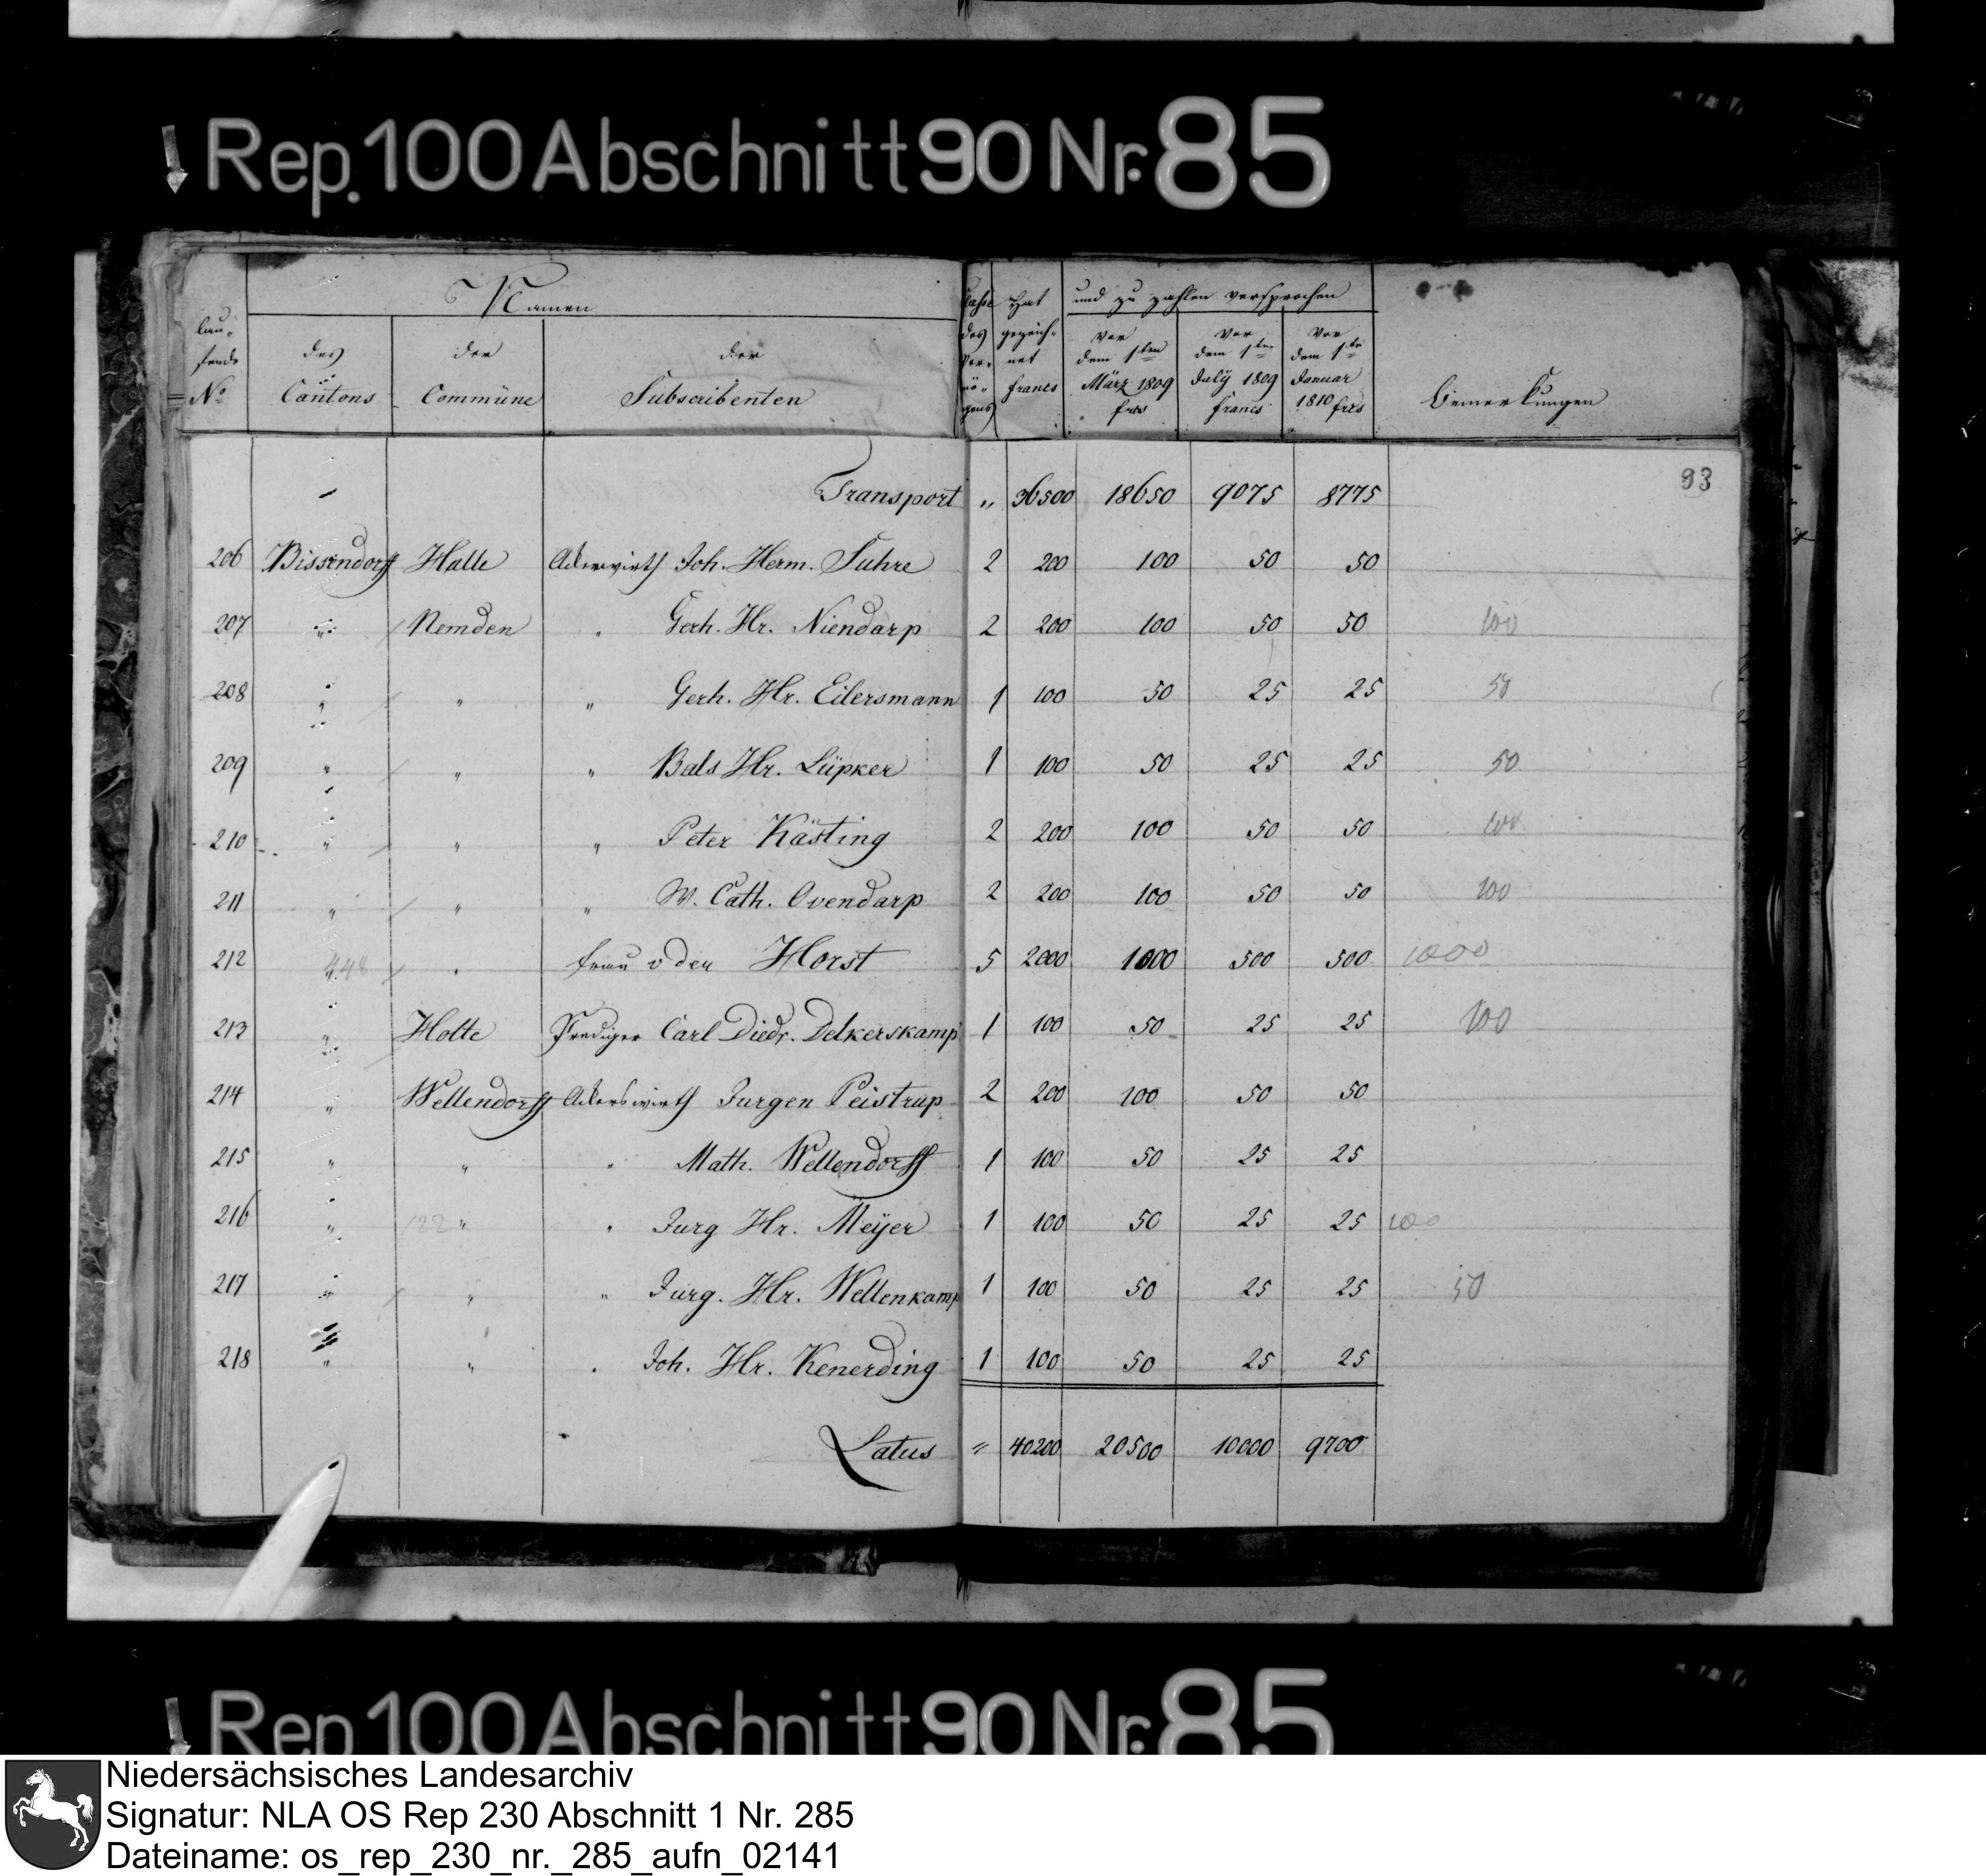 Rep. 100 Abschnitt 90 Nr. 85
Namen
laufende No
des Cantons
der Commüne
der Subscribenten
Classe des Vermögens
Hat gezeichnet francs
und zu zahlen versprochen
vor dem 1ten März 1809 frcs
vor dem 1ten July 1809 francs
vor dem 1ten Januar 1810 frcs
Bemerkungen
93
Transport „ 36500 18650 9075 8775
206 Bissendorff Halle Ackerwirth Joh. Herm. Suhre 2 200 100 50 50
207 „ Nemden „ Gerh. Hr. Niendarp 2 200 100 50 50 100
208 „ „ „ Gerh. Hr. Eilersmann 1 100 50 25 25 50
209 „ „ „ Bals Hr. Lüpker 1 100 50 25 25 50
210 „ „ „ Peter Kästing 2 200 100 50 50 100
211 „ „ „ W. Cath. Ovendarp 2 200 100 50 50 100
212 „ „ frau v der Horst 5 2000 1000 500 500 1000
213 „ Holte Prediger Carl Diedr. Delkerskamp 1 100 50 25 25 100
214 „ Wellendorff Ackerswirth Jurgen Peistrup 2 200 100 50 50
215 „ „ „ Math. Wellendorff 1 100 50 25 25
216 „ 122 „ „ Jurg Hr. Meÿer 1 100 50 25 25 100
217 „ „ „ Jurg. Hr. Wellenkamp 1 100 50 25 25 50
218 „ „ „ Joh. Hr. Kenerding 1 100 50 25 25
Latus „ 40200 20500 10000 9700
Rep 100 Abschnitt 90 Nr. 85
Niedersächsisches Landesarchiv
Signatur: NLA OS Rep 230 Abschnitt 1 Nr. 285
Dateiname: os_rep_230_nr._285_aufn_02141